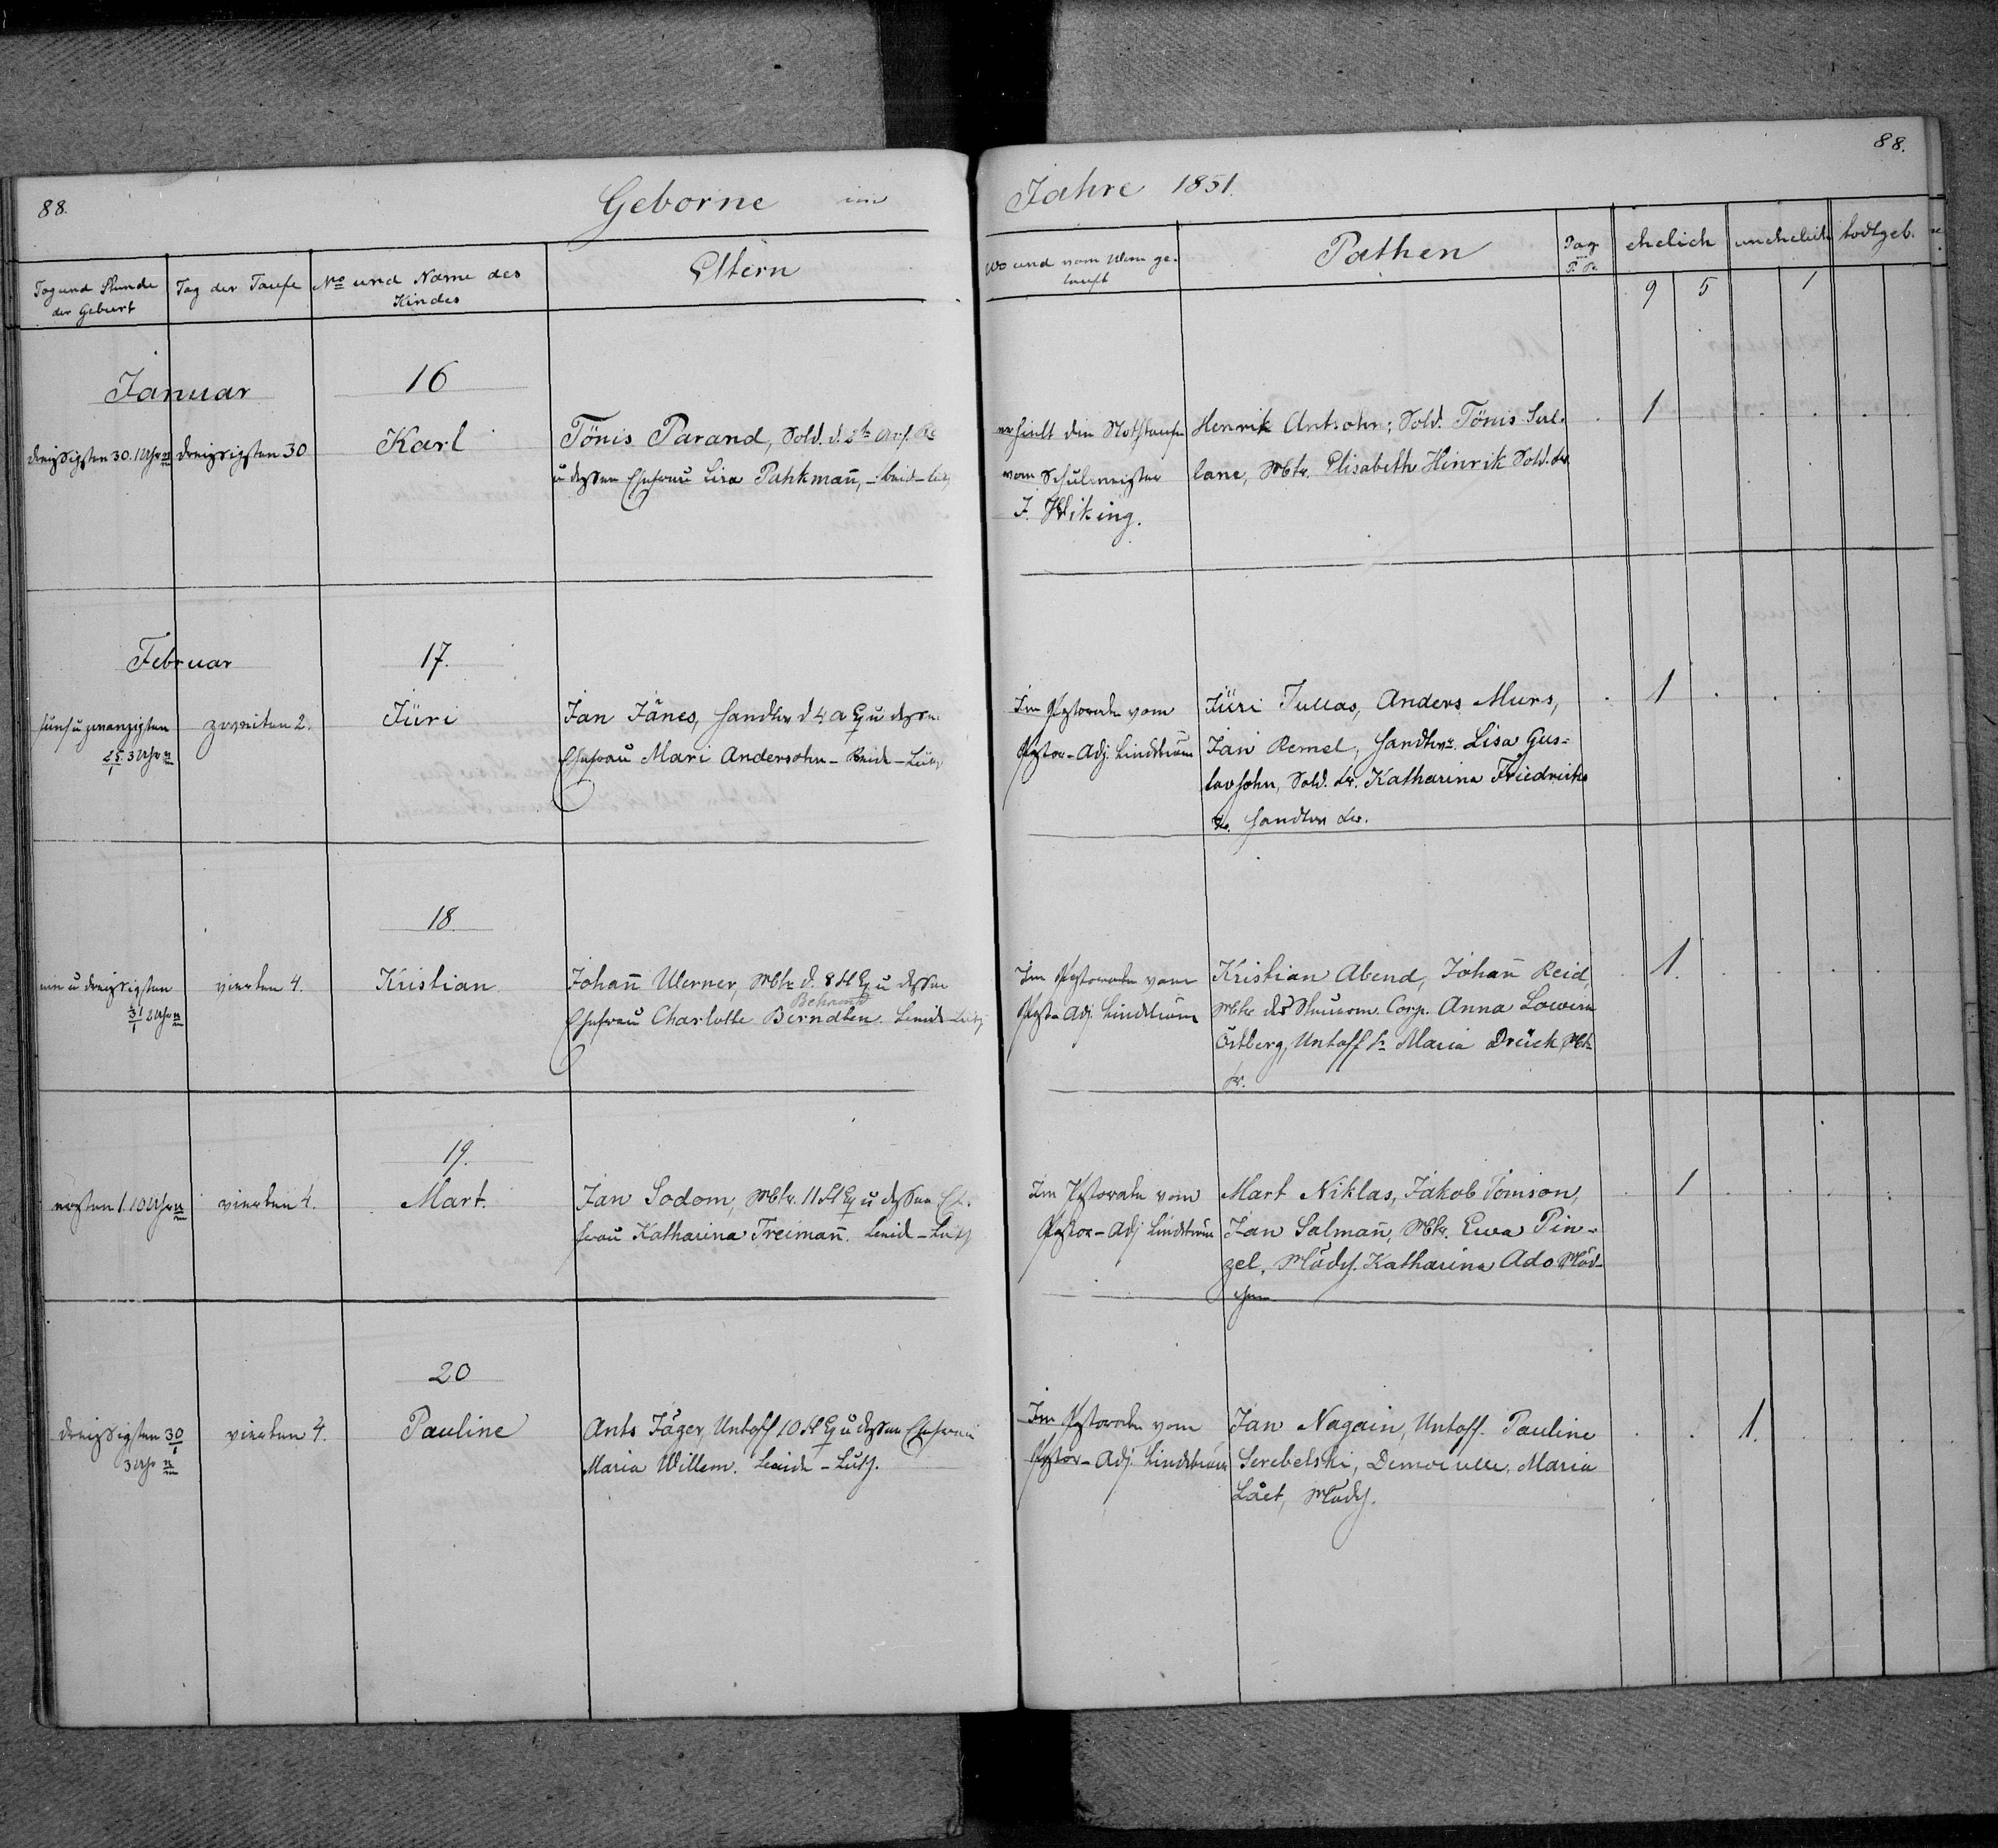 88.
Geborne im
Jahre 1851.
88.
Tag und Stunde der Geburt
Tag der Taufe
No und Name des Kindes
Eltern
Wo und vom Wem getauft
Pathen
Tag
ehelich
unehelich
todtgeb.
9 5 1
Januar
16
dreißigsten 30. 1 Uhr
dreißigsten 30
Karl
Tönis Parand, Sold. d.
u dessen Ehefrau Lisa Pahkmañ, - beid-
erhielt die Nothtaufe
vom Schulmeister
J. Wiking.
Henrik Antsohn; Sold. Tönis Sal-
lane, Mtr. Elisabeth Hinrik Sold.
1
Februar
17.
fünf u zwanzigsten
25 3 Uhr
1
zweiten 2.
Jüri
Jan Jänes, Handlr d 4 a Eq u dessen
Ehefrau Mari Andersohn - Beide - Luth
Im Pastorate vom
Pastor - Adj. Lindström
Jüri Tullas, Anders Murs,
Jan Remel, Lisa Gus=
tavsohn, Sold. Katharina Friedrichs
1
18.
ein u dreißigsten
31 2 Uhr
1
vierten 4.
Kristian
Johañ Werner, d. 8 Eq u dessen
Behrend
Ehefrau Charlotte Berndten. Beide - Luth
Im Pastorate vom
Past. Adj. Lindström
Kristian Abend, Johañ Reid,
Mtr. des Corp. Anna Lowisa
Östberg, Untoff Maria Drück
1.
19.
ersten 1. 10 Uhr
vierten 4.
Mart.
Jan Sodom, 11 Eq u dessen Eh-
frau Katharina Treimañ. Beid - Luth
Im Pastorate vom
Pastor - Adj Lindström
Mart Niklas, Jakob Tomson,
Jan Salmañ, Ewa Pin=
zel, Mädch. Katharina Ado Mäd-
chen
1
20
dreißigsten 30
1
3 Uhr
vierten 4.
Pauline
Ants Jäger, Untoff 10 Eq u dessen Ehefrau
Maria Willem. Beide - Luth.
Im Pastorate vom
Pastor - Adj. Lindström
Jan Nagain, Untoff. Pauline
Serebelski, Demoiselle, Maria
Läet, Mädch.
1.